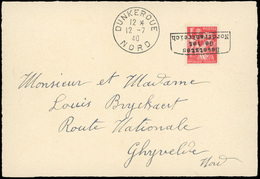 DUNKERQUE
12 H
12 -7
40
NORD
Besetztes
Gebiet
Nordfrankreich
Monsieur et Madame
Louis Bryckaert
Route Nationale
Ghyvelde
Nord